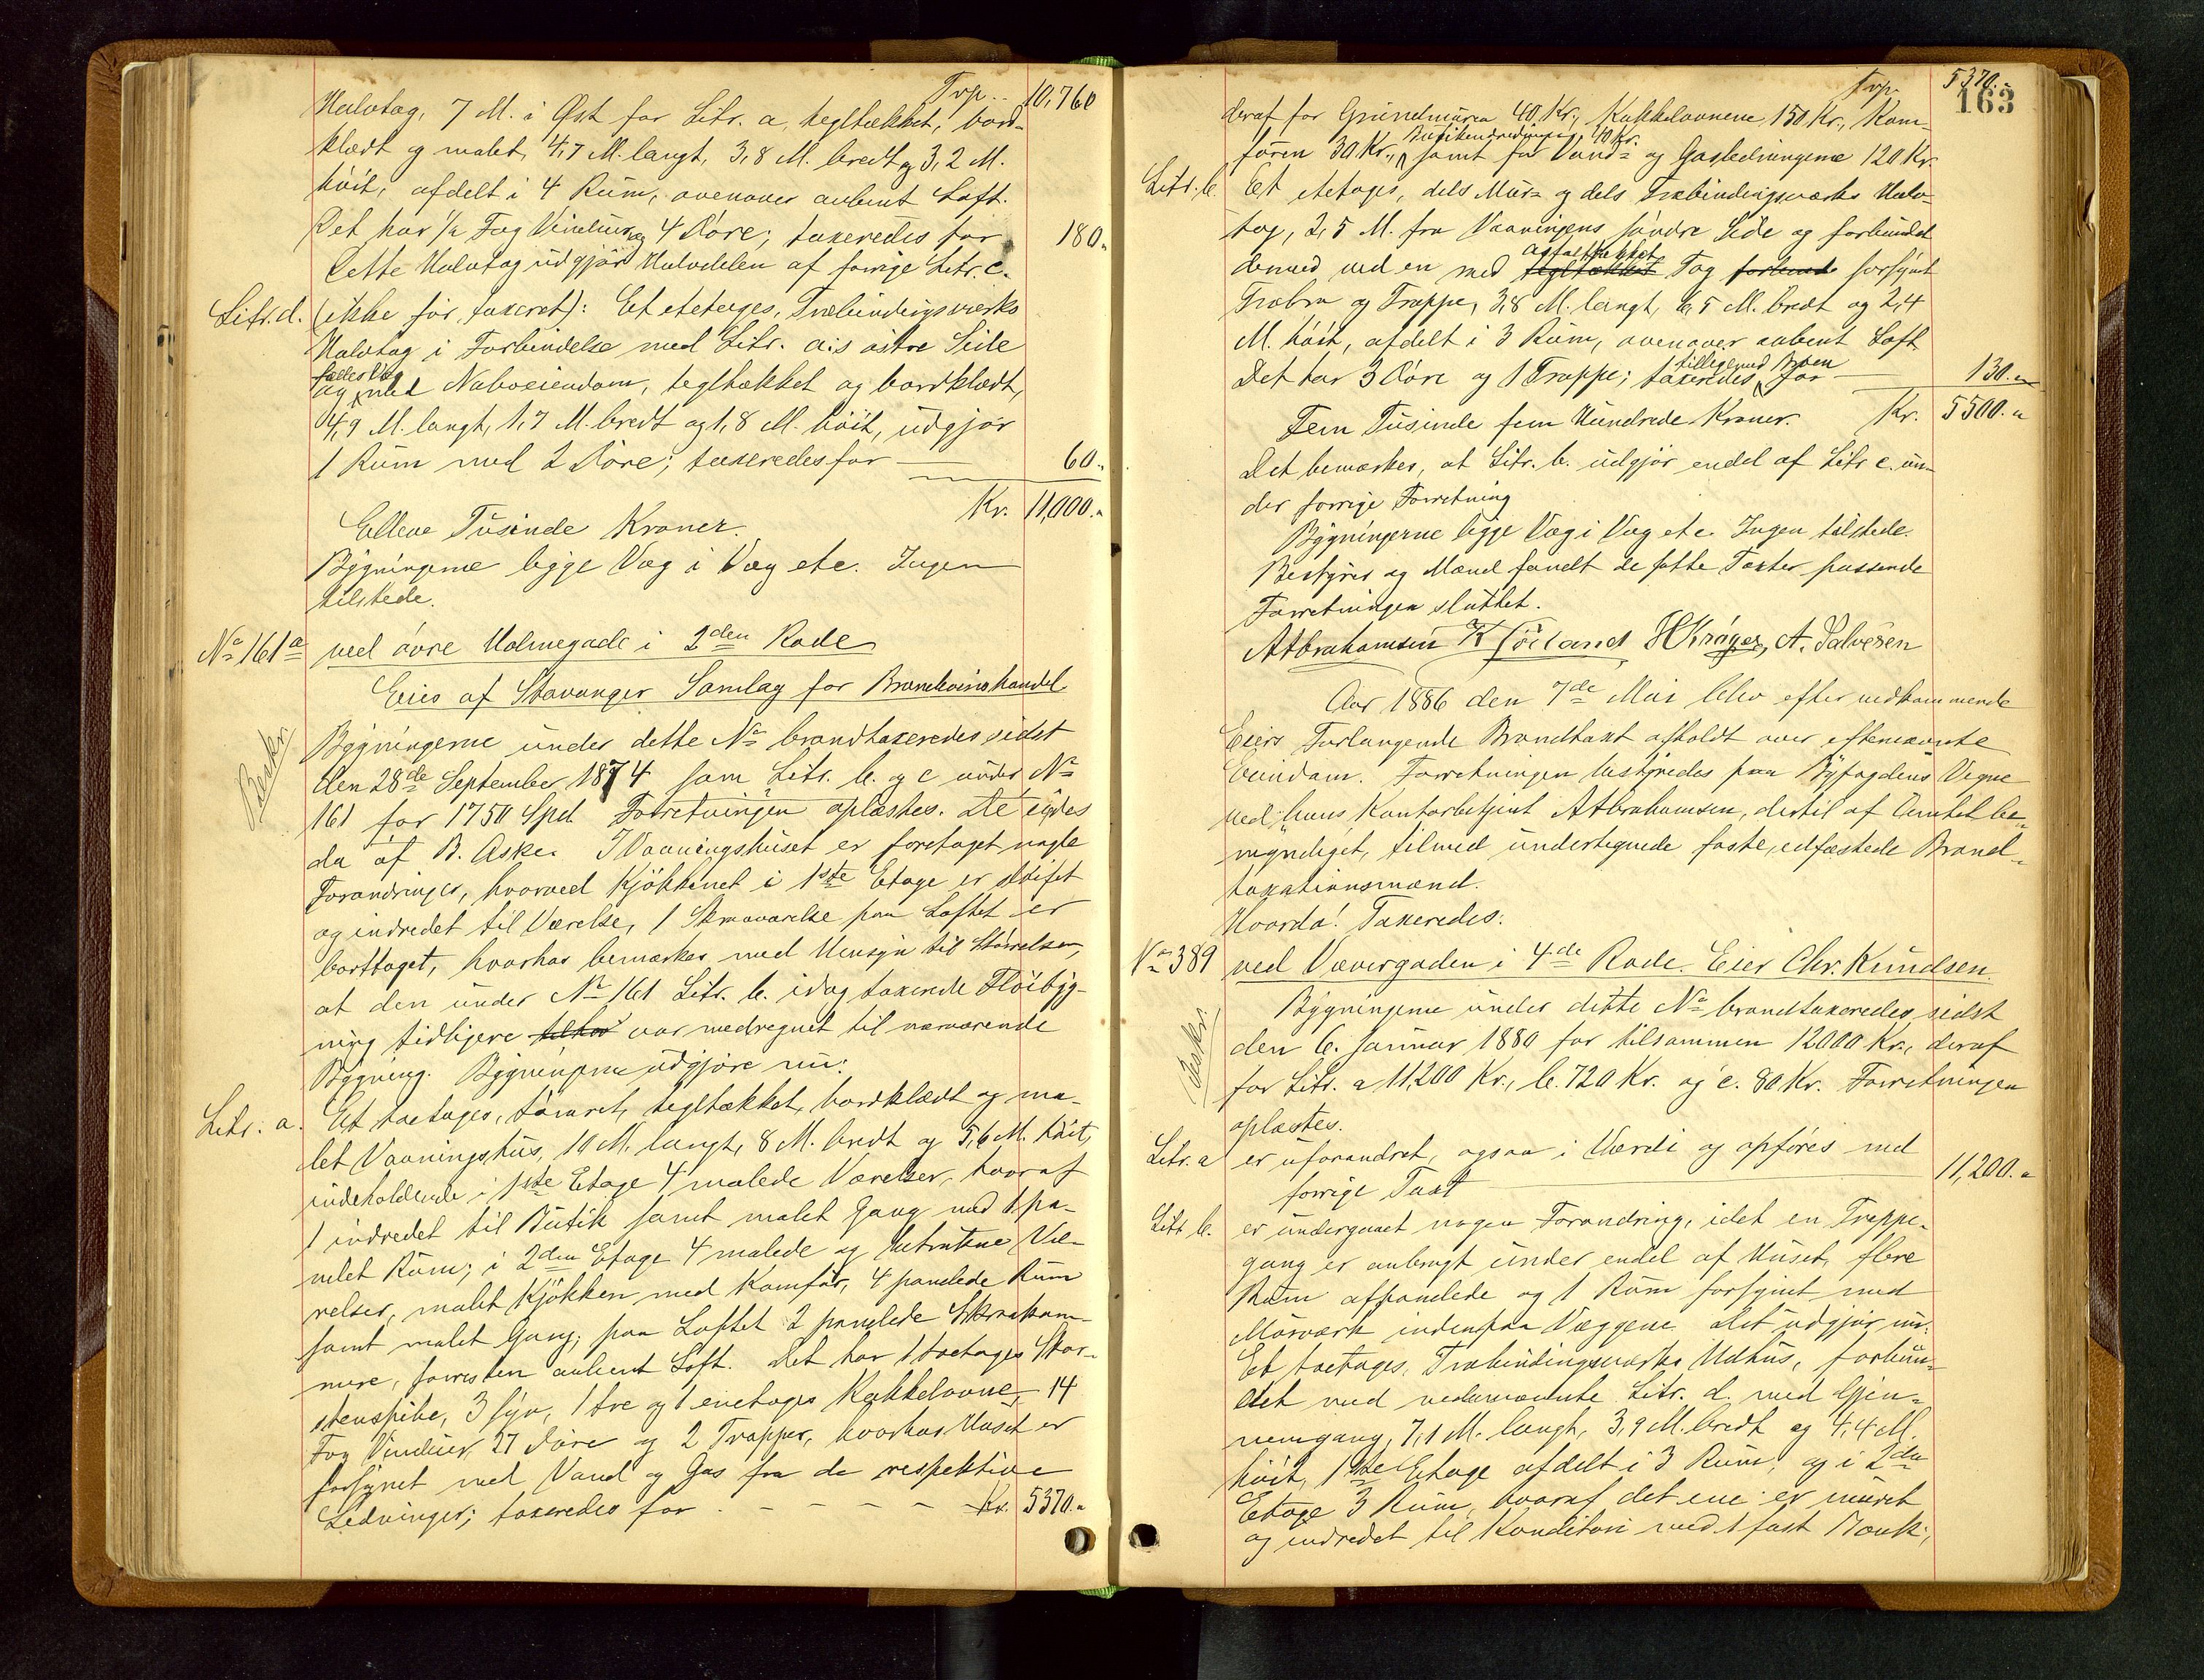 Trp. 10,760
Halvtag, 7 M. i Øst for Litr. a, tegltækket, bord-
klædt og malet, 4,7 M. langt, 3,8 M. bredt og 3,2 M.
höit, afdelt i 4 Rum, ovenover aabent Loft.
Det har ½ Fag Vinduer og 4 Döre; taxeredes for 180.
Dette Halvtag udgjör Halvdelen af forrige Litr. c.
Litr. d. (ikke för taxeret): Et etetages, Træbindingsværks
Halvtag i Forbindelse med Litr. a:s östre Side
fælles Væg
og med Naboeiendom, tegltækket og bordklædt,
4,9 M. langt, 1,7 M. bredt og 1,8 M. höit, udgjör
1 Rum med 2 Döre; taxeredes for 60.
Kr. 11,000.
Elleve Tusinde Kroner.
Bygningerne ligge Væg i Væg etc. Ingen
tilstede.
No 161a ved övre Holmegade i 2den Rode
Eies af Stavanger Samlag for Brændevinshandel
Beskr.
Bygningerne under dette No brandtaxeredes sidst
den 28de September 1874 som Litr. b. og c under No
161 for 1750 Spd. Forretningen oplæstes. De eiedes
da af B. Aske. I Vaaningshuset er foretaget nogle
Forandringer, hvorved Kjökkenet i 1ste Etage er slöifet
og indredet til Værelse, 1 Skraaværelse paa Loftet er
borttaget, hvorhos bemærkes med Hensyn til Störrelsen,
at den under No 161 Litr. b. idag taxerede Flöibyg-
ning tidligere var medregnet til nærværende
Bygning. Bygningerne udgjöre nu:
Litr. a. Et toetages, tömret, tegltækket, bordklædt og ma-
let Vaaningshus, 10 M. langt, 8 M. bredt og 5,6 M. höit,
indeholdende i 1ste Etage 4 malede Værelser, hvoraf
1 indredet til Butik samt malet Gang med 1 pa-
nelet Rum; i 2den Etage 4 malede og betrukne Væ-
relser, malet Kjökken med Komför, 4 panelede Rum
samt malet Gang; paa Loftet 2 panelede Skraakam-
mere, forresten aabent Loft. Det har 1 toetages Skor-
stenspibe, 3 fyr, 1 tre og 1 enetages Kakkelovne, 14
Fag Vinduer, 27 Döre og 2 Trapper, hvorhos Huset er
forsynet med Vand og Gas fra de respektive
Ledninger; taxeredes for Kr. 5370.
Trp. 5370.
163
deraf for Grundmuren 40 Kr., Kakkelovnene 150 Kr., Kom-
Butikindredningen 40 Kr.
fören 30 Kr., samt for Vand- og Gasledningerne 120 Kr.
Litr. b. Et etetages, dels Mur- og dels Træbindingsværks Halv-
tag, 2,5 M. fra Vaaningens söndre Side og forbundet
asfalttækket
dermed ved en med tegltækket Tag forbund forsynt
Træbro og Trappe, 3,8 M. langt, 6,5 M. bredt og 2,4
M. höit, afdelt i 3 Rum, ovenover aabent Loft.
tilligemed Broen
Det har 3 Döre og 1 Trappe; taxeredes for 130.
Fem Tusinde fem Hundrede Kroner. Kr. 5500.
Det bemærkes, at Litr. b. udgjör endel af Litr c. un-
der forrige Forretning
Bygningerne ligge Væg i Væg etc. Ingen tilstede.
Bestyrer og Mænd fandt de satte Taxter passende
Forretningen sluttet.
A Abrahamsen H Kröyer, A. Salvesen
Aar 1886 den 7de Mai blev efter vedkommende
Eiers Forlangende Brandtaxt afholdt over eftermævnte
Eiendom. Forretningen bestyredes paa Byfogdens Vegne
ved hans Kontorbetjent A Abrahamsen, dertil af Amtet be-
myndiget, tilmed undertegnede faste, edfæstede Brand-
taxationsmænd.
Hvorda! Taxeredes:
No 389 ved Vævergaden i 4de Rode. Eier Chr. Knudsen.
Beskr.
Bygningerne under dette No brandtaxeredes sidst
den 6. Januar 1880 for tilsammen 12000 Kr., deraf
for Litr. a 11,200 Kr., b. 720 Kr. og c. 80 Kr. Forretningen
oplæstes.
Litr. a er uforandret, ogsaa i Værdi og opföres med
forrige Taxt 11,200.
Litr. b. er undergaaet nogen Forandring, idet en Trappe-
gang er anbragt under endel af Huset, flere
Rum afpanelede og 1 Rum forsynet med
Murværk indenpaa Væggene. Det udgjör nu:
Et toetages, Træbindingsværks Udhus, forbun-
det med nedennævnte Litr. d. med Gjen-
nemgang, 7,1 M. langt, 3,9 M. bredt og 4,4 M.
höit, 1ste Etage afdelt i 3 Rum, og i 2den
Etage 3 Rum, hvoraf det ene er muret
og indredet til Konditori med 1 fast Bænk,